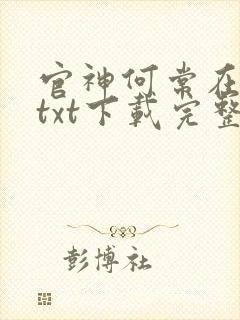 官神何常在
txt下載完整
彭博社